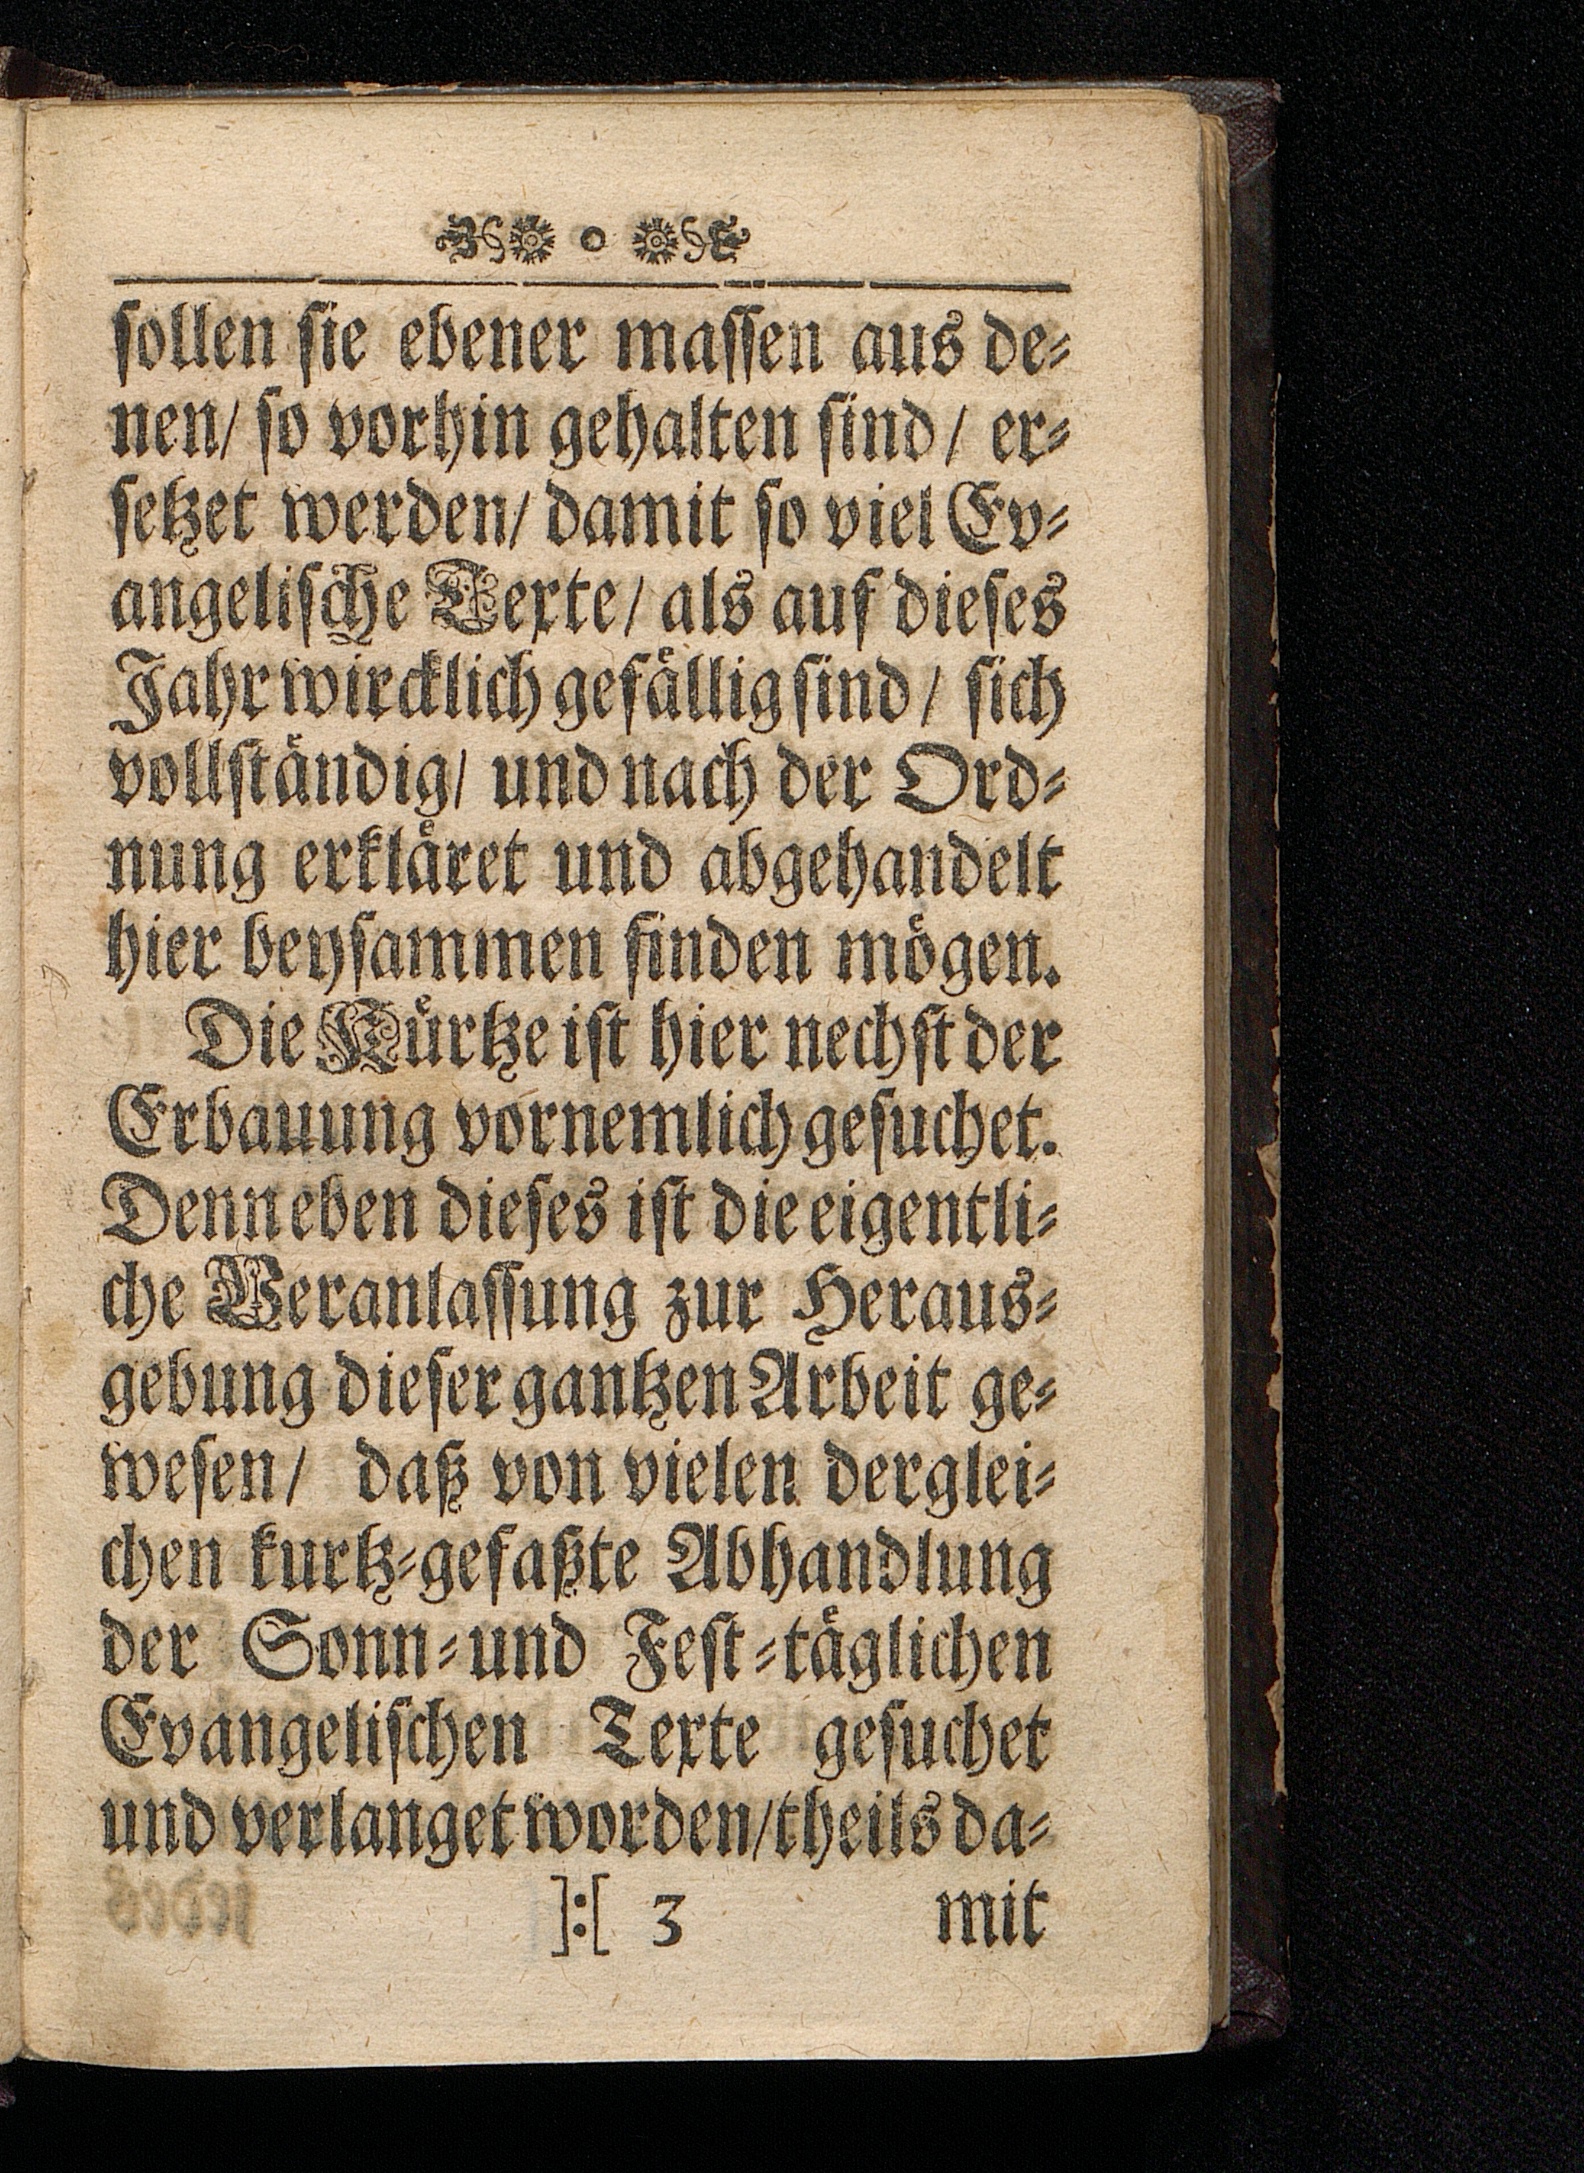 sollen sie ebener massen aus de-
nen/ so vorhin gehalten sind/ er-
setzet werden/ damit so viel Ev-
angelische Texte/ als auf dieses
Jahr wircklich gefällig sind/ sich
vollständig/ und nach der Ord-
nung erkläret und abgehandelt
hier beysammen finden mögen.
Die Kürtze ist hier nechst der
Erbauung vornemlich gesuchet.
Denn eben dieses ist die eigentli-
che Veranlassung zur Heraus-
gebung dieser gantzen Arbeit ge-
wesen/ daß von vielen derglei-
chen kurtz-gefaßte Abhandlung
der Sonn- und Fest-täglichen
Evangelischen Texte gesuchet
und verlanget worden/ theils da-
]:[ 3 mit